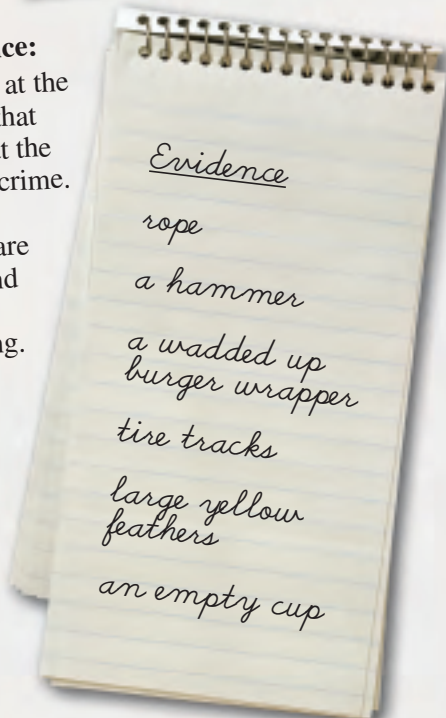 ce:
at the
hat
t the
crime.
are
nd
ng.
Evidence
rope
a hammer
a wadded up
burger wrapper
tire tracks
large yellow
feathers
an empty cup